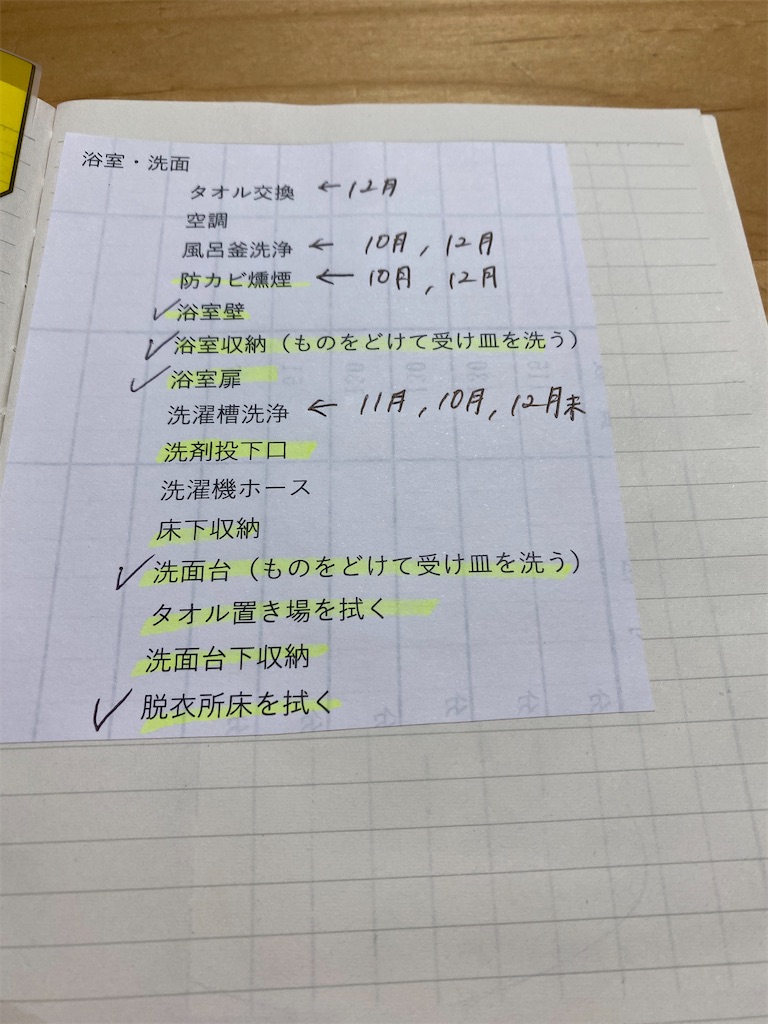 浴室・洗面
タオル交換 ← 12月
空調
風呂釜洗浄 ← 10月, 12月
防カビ燻煙 ← 10月, 12月
✓浴室壁
✓浴室収納（ものをどけて受け皿を洗う）
✓浴室扉
洗濯槽洗浄 ← 11月, 10月, 12月末
洗剤投下口
洗濯機ホース
床下収納
✓洗面台（ものをどけて受け皿を洗う）
タオル置き場を拭く
洗面台下収納
✓脱衣所床を拭く